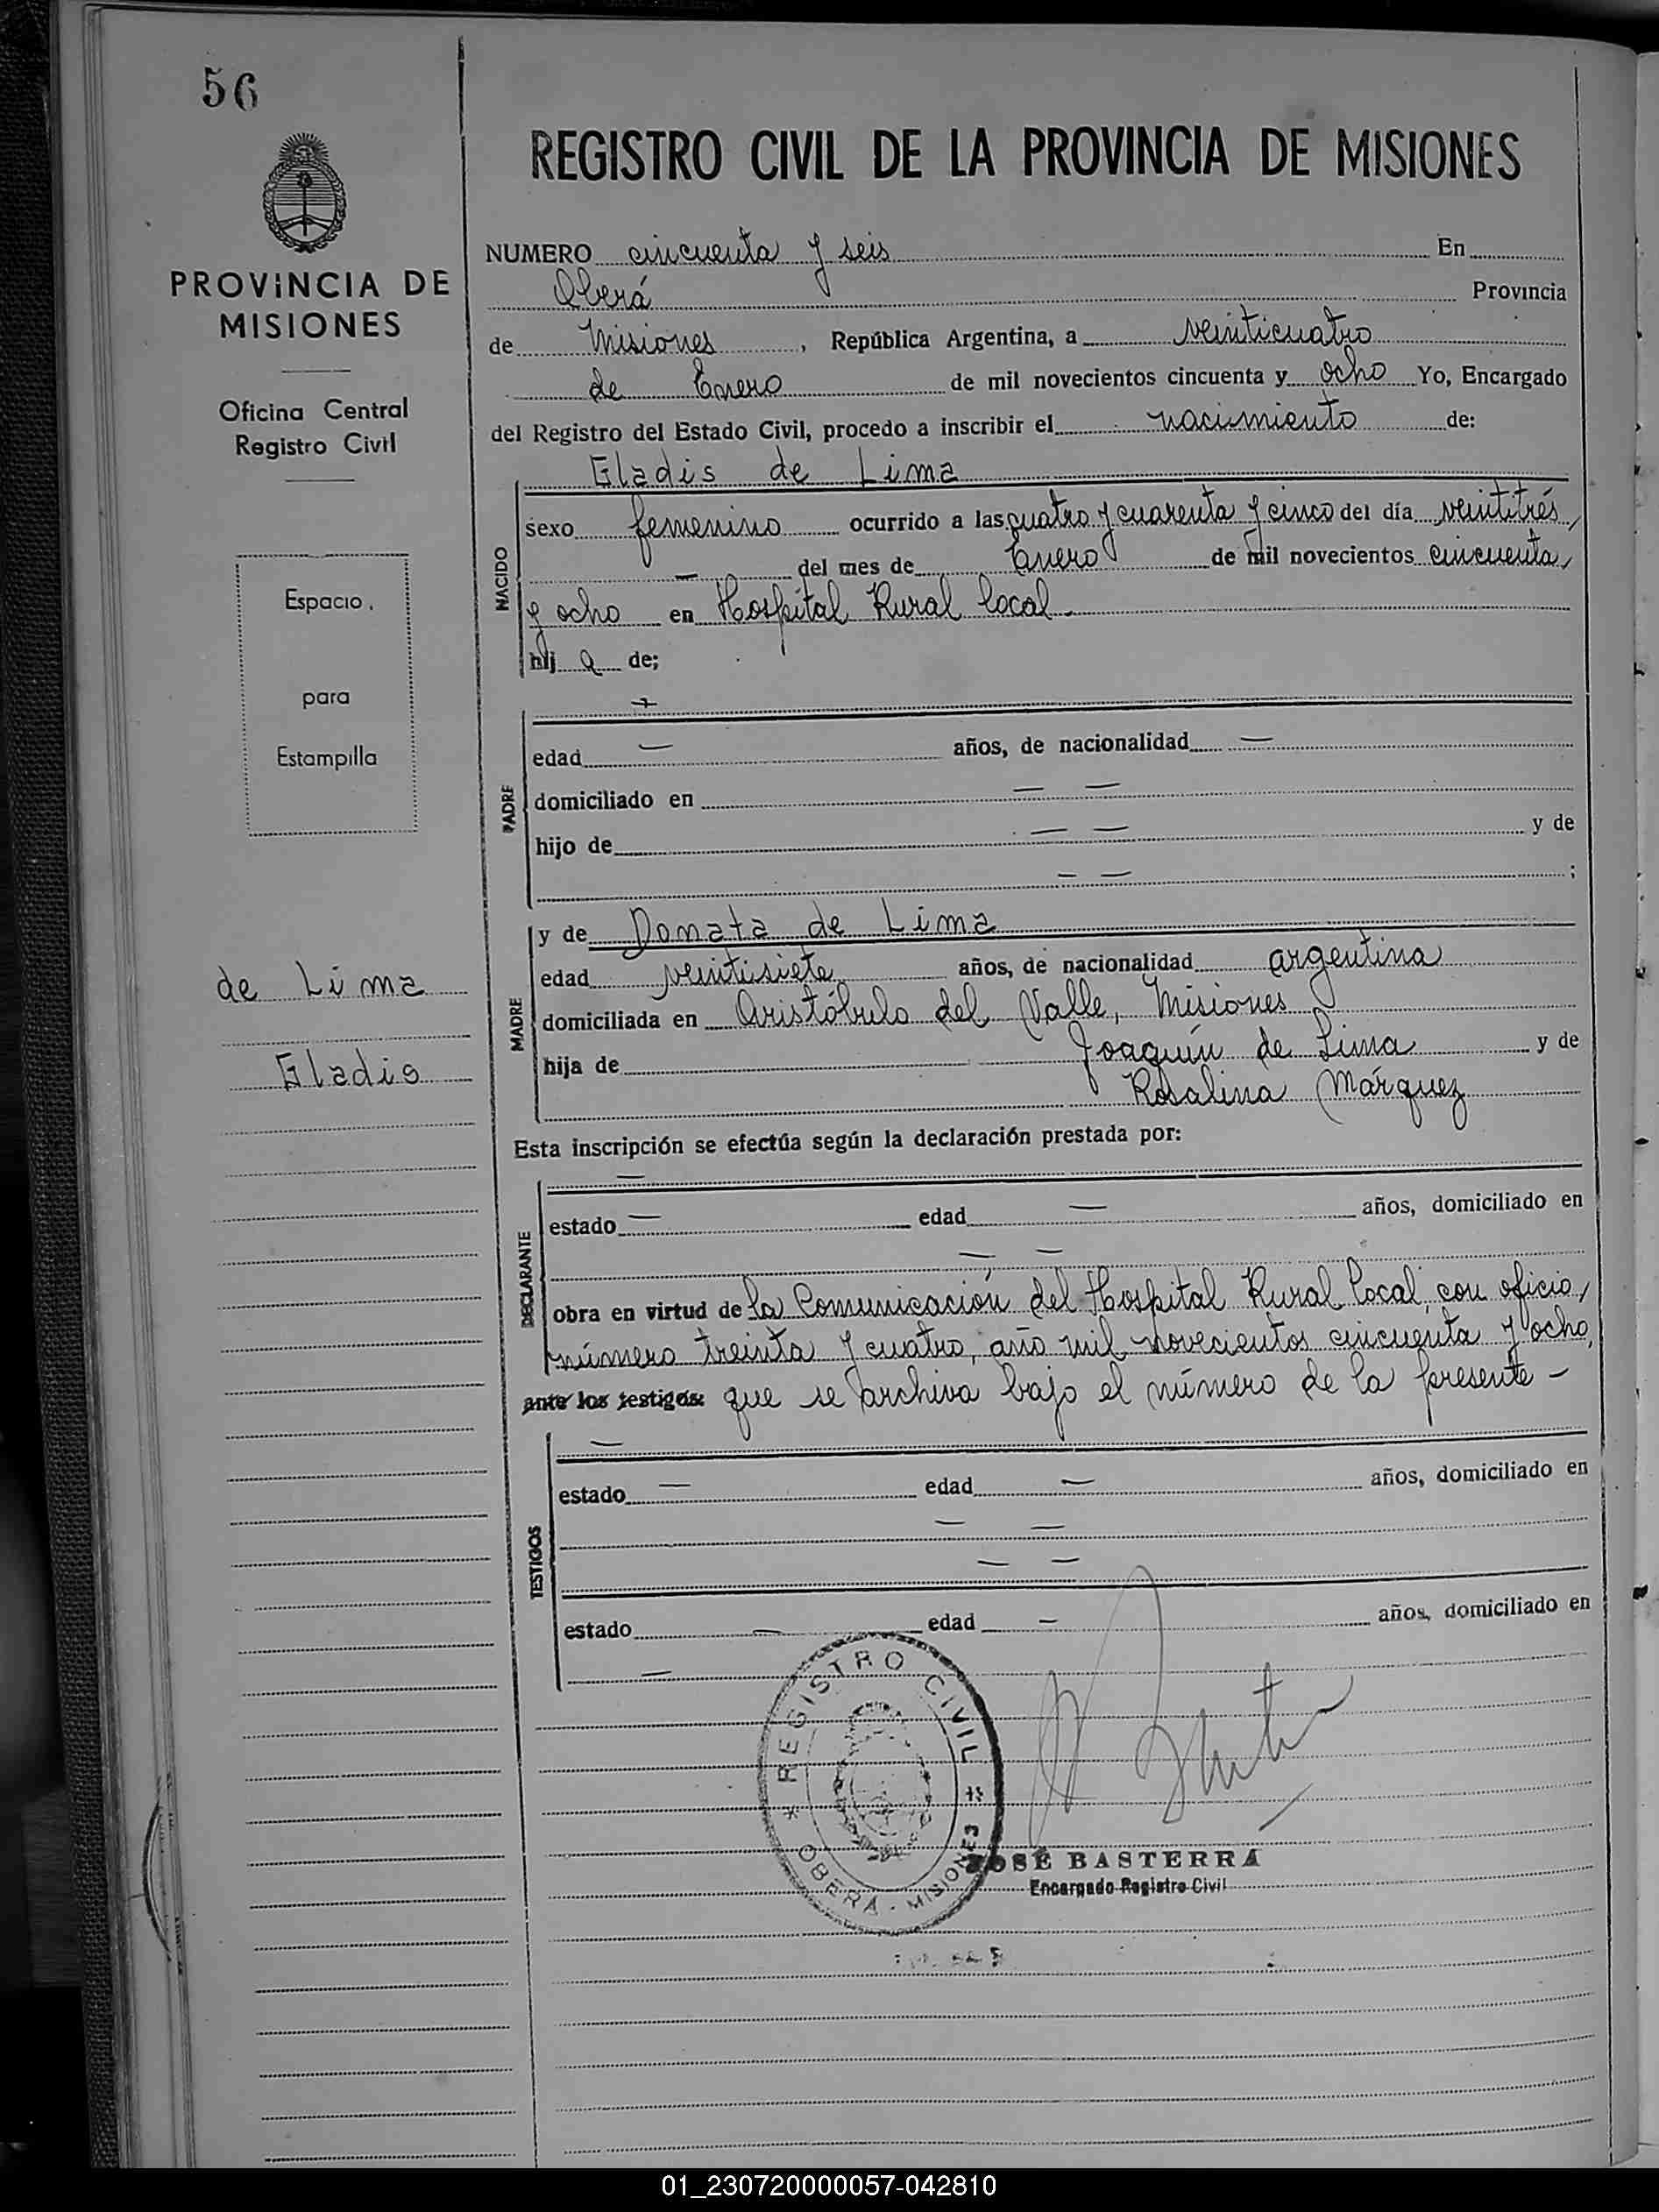 56
REGISTRO CIVIL DE LA PROVINCIA DE MISIONES
PROVINCIA DE
MISIONES
Oficina Central
Registro Civil
Espacio
para
Estampilla
de Lima
Gladis
NUMERO cincuenta y seis En
Oberá Provincia
de Misiones, República Argentina, a veinticuatro
de Enero de mil novecientos cincuenta y ocho Yo, Encargado
del Registro del Estado Civil, procedo a inscribir el nacimiento de:
Gladis de Lima
NACIDO
sexo femenino ocurrido a las cuatro y cuarenta y cinco del día veintitrés
— del mes de Enero de mil novecientos cincuenta
y ocho en Hospital Rural local
hij a de;
PADRE
edad — años, de nacionalidad —
domiciliado en — —
hijo de — — y de
— — ;
MADRE
y de Donata de Lima
edad veintisiete años, de nacionalidad argentina
domiciliada en Aristóbulo del Valle, Misiones
hija de Joaquín de Lima y de
Rosalina Márquez
Esta inscripción se efectúa según la declaración prestada por:
—
DECLARANTE
estado — edad — años, domiciliado en
— —
obra en virtud de la Comunicación del Hospital Rural Local, con oficio
número treinta y cuatro, año mil novecientos cincuenta y ocho,
ante los testigos: que se archiva bajo el número de la presente —
—
TESTIGOS
estado — edad — años, domiciliado en
— —
— —
estado — edad — años, domiciliado en
—
REGISTRO CIVIL
OBERA - MISIONES
JOSÉ BASTERRA
Encargado Registro Civil
01_230720000057-042810